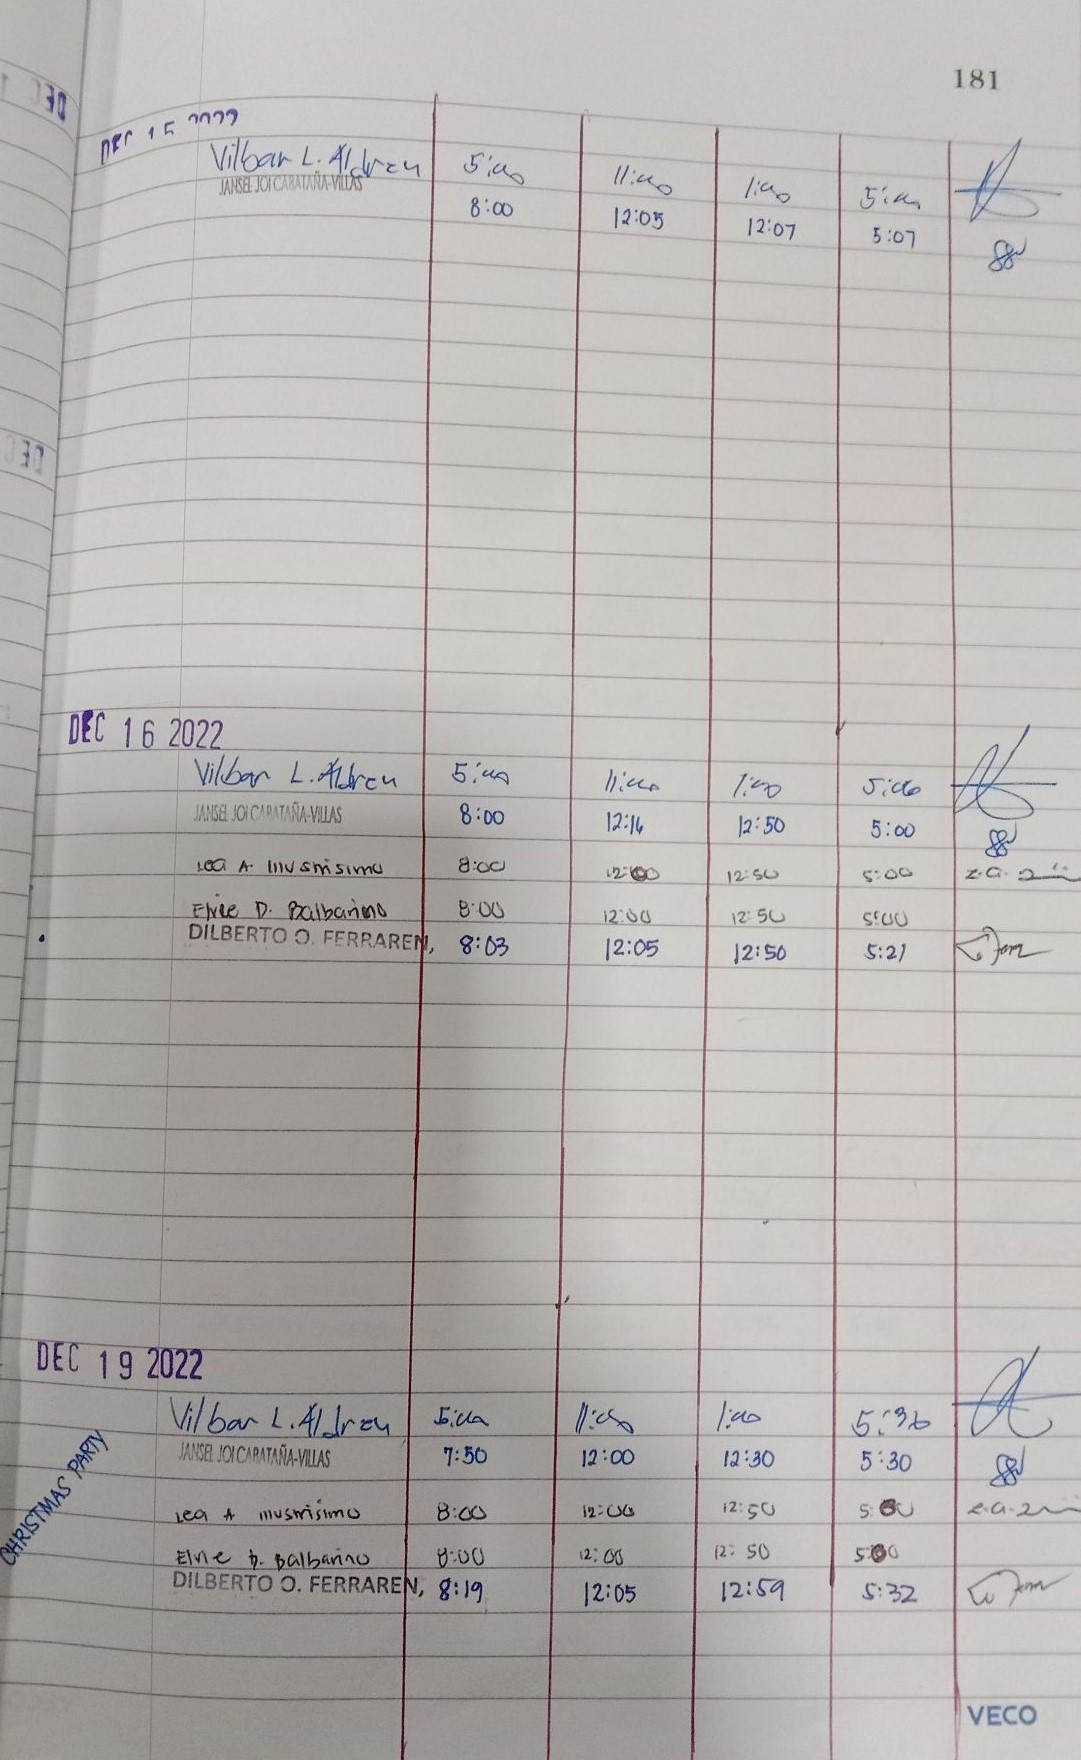 181
DEC 15 2022
Vilbar L. Aldren 5:00 11:00 1:00 5:00
JANSEL JOI CABATAÑA-VILLAS 8:00 12:05 12:07 5:07
DEC 16 2022
Vilbar L. Aldren 5:00 11:00 1:00 5:00
JANSEL JOI CABATAÑA-VILLAS 8:00 12:14 12:50 5:00
Lea A. Illustrisimo 8:00 12:00 12:50 5:00
Elvie D. Balbarino 8:00 12:00 12:50 5:00
DILBERTO O. FERRAREN, 8:03 12:05 12:50 5:21
DEC 19 2022
Vilbar L. Aldren 5:00 11:00 1:00 5:36
JANSEL JOI CABATAÑA-VILLAS 7:50 12:00 12:30 5:30
CHRISTMAS PARTY
Lea A Illustrisimo 8:00 12:00 12:50 5:00
Elvie D. Balbarino 8:00 12:00 12:50 5:00
DILBERTO O. FERRAREN, 8:19 12:05 12:59 5:32
VECO